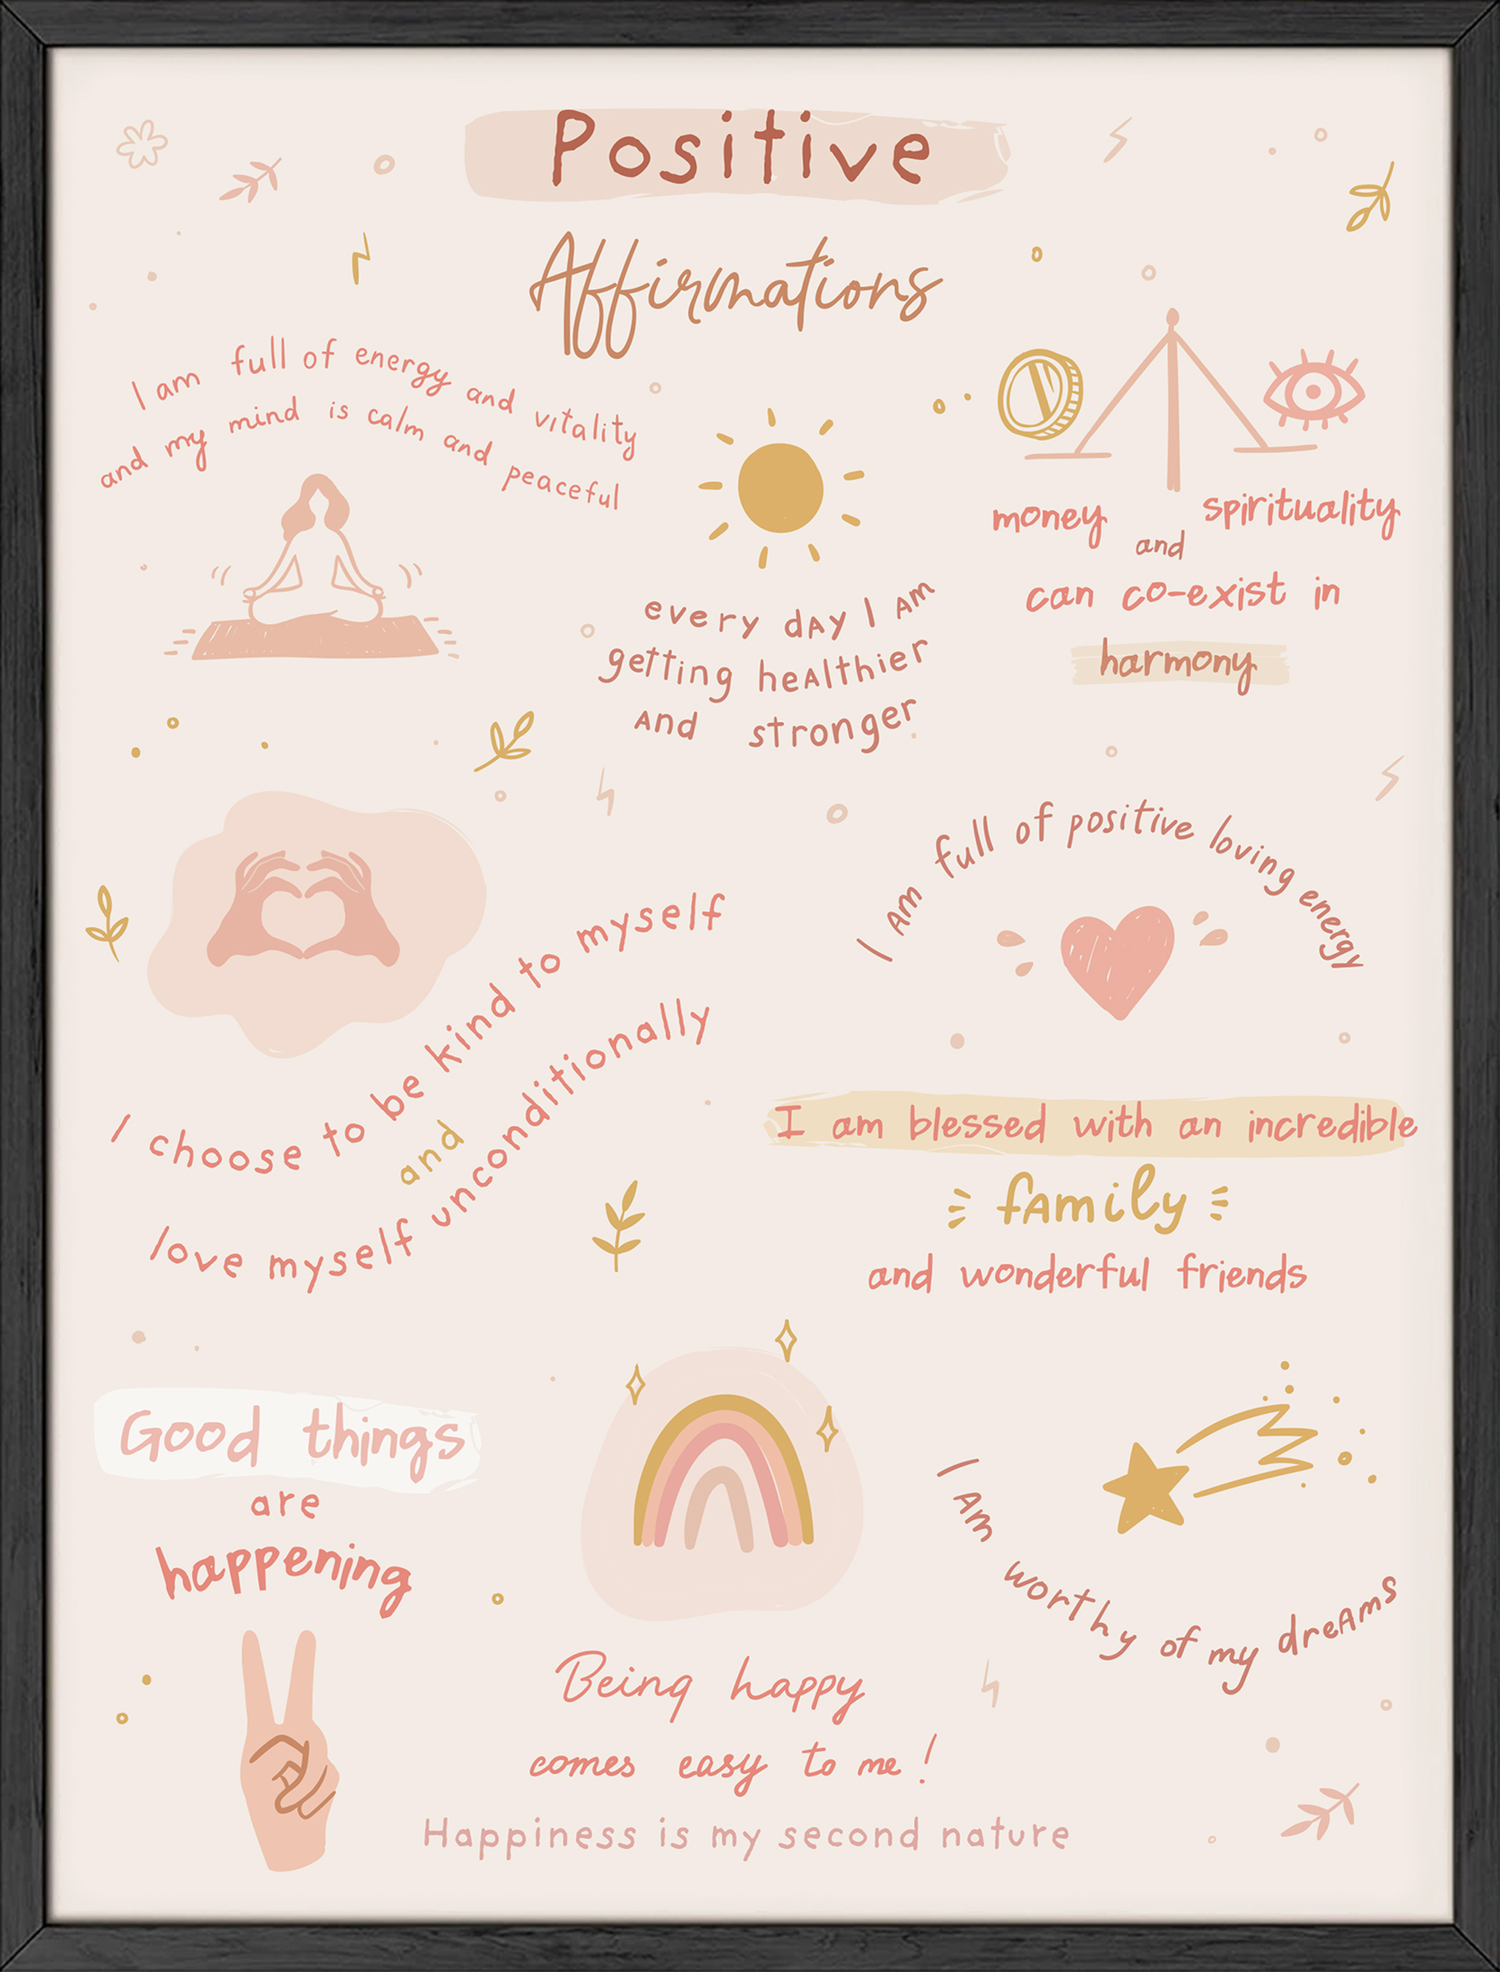 Positive
Affirmations
I am full of energy and vitality
and my mind is calm and peaceful
every dAy I Am
getting heAlthier
And stronger
money and spirituality
can co-exist in
harmony
I choose to be kind to myself
and
love myself unconditionally
I Am full of positive loving energy
I am blessed with an incredible
fAmily
and wonderful friends
Good things
are
happening
Being happy
comes easy to me!
Happiness is my second nature
I Am worthy of my dreAms